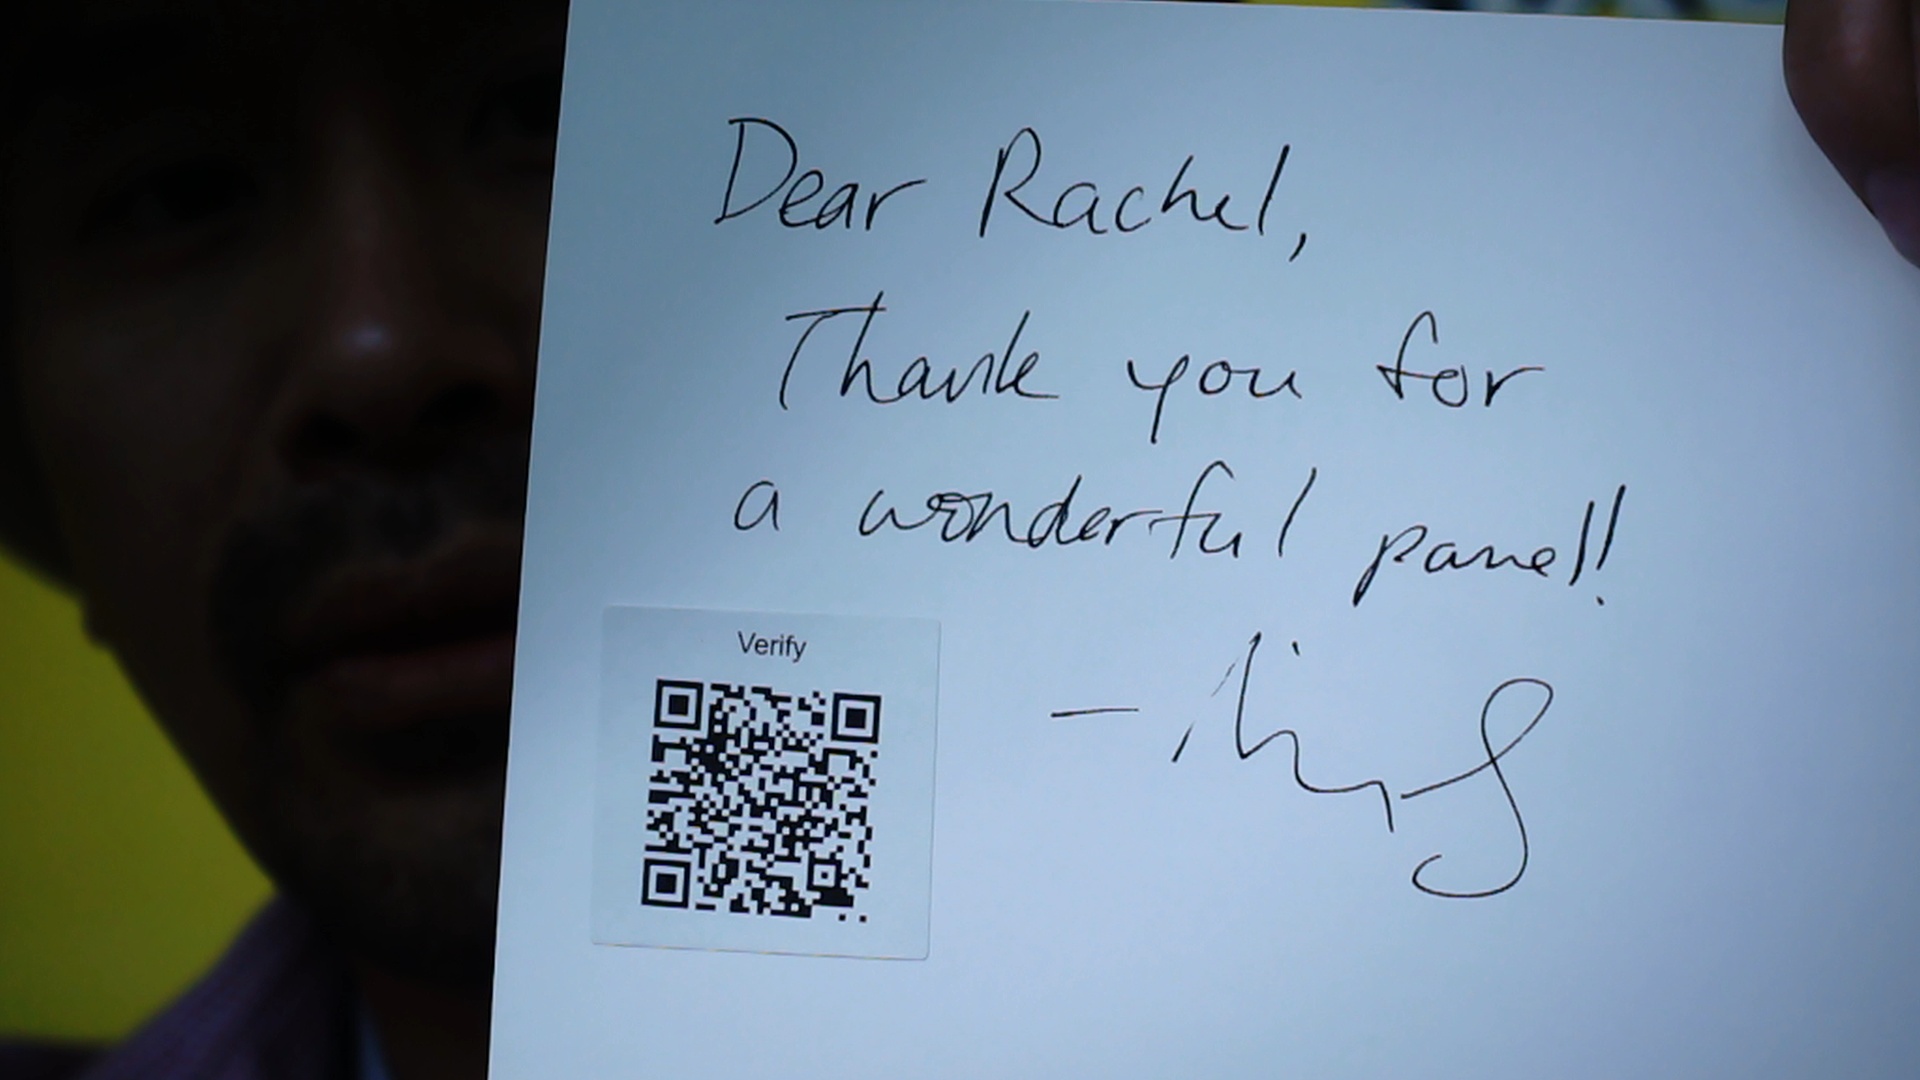 Dear Rachel,
Thank you for
a wonderful panel!
Verify